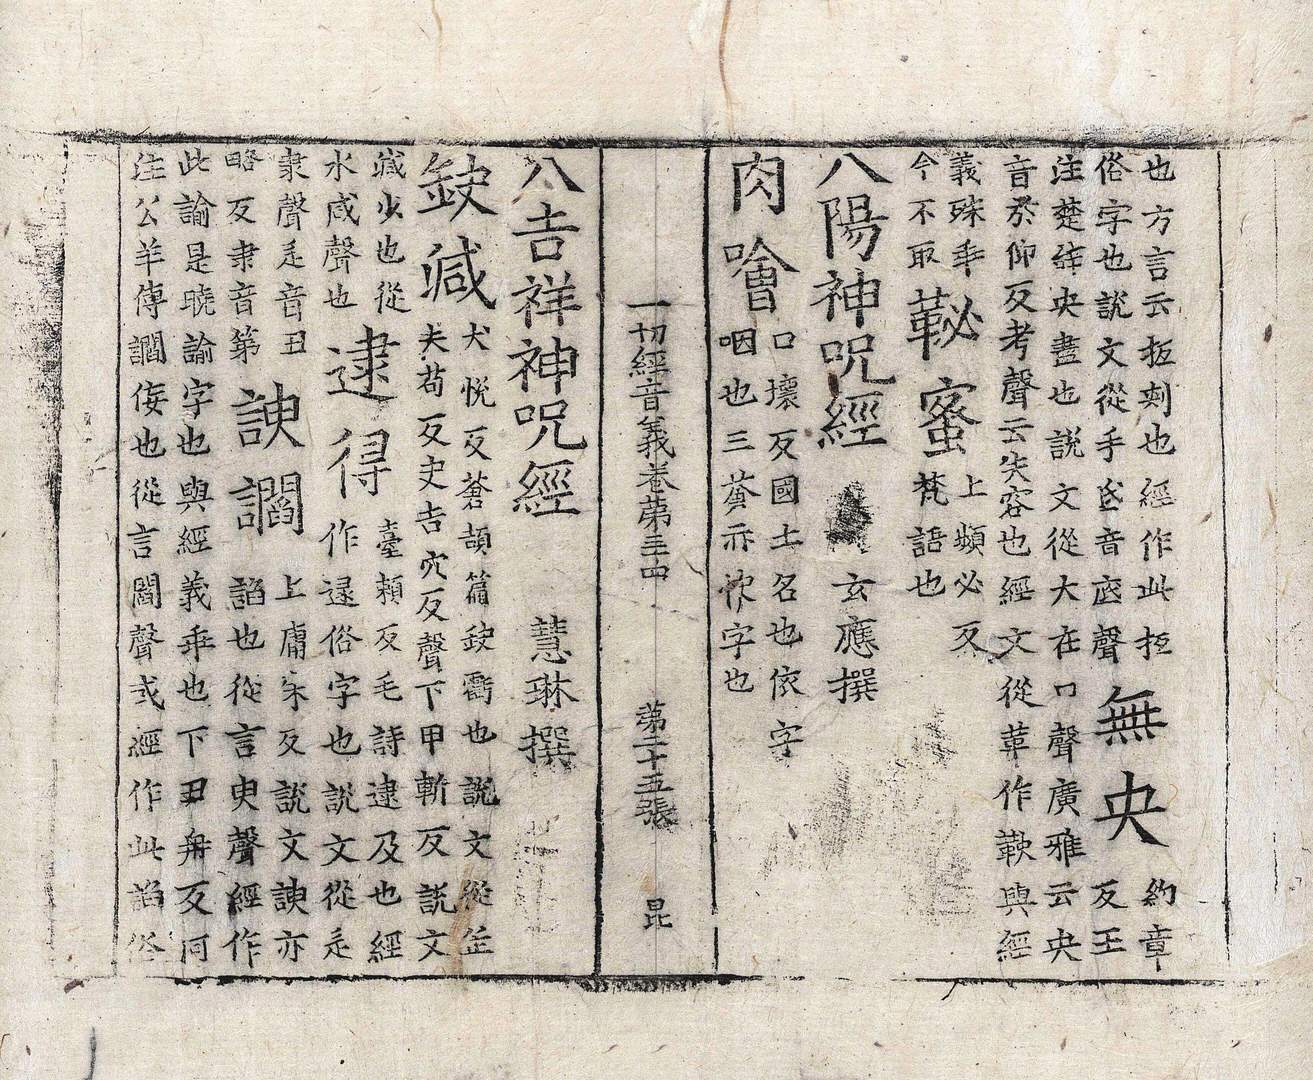 也方言云拒刾也經作此拒
俗字也說文從手巨音底聲
無央
約章
反王
注楚辝央盡也說文從大在冂聲廣雅云央
音於仰反考聲云失容也經文從革作鞅與經
義殊乖
今不取
鞞蜜
上頻必反
梵語也
八陽神呪經 玄應撰
肉噲
口壞反國土名也依字
咽也三蒼亦快字也
一切經音義卷第三十四 第二十五張 昆
八吉祥神呪經 慧琳撰
缺減
犬悅反蒼頡篇缺虧也說文從缶
夬苟反史吉穴反聲下甲斬反説文
減少也從
水咸聲也
逮得
臺賴反毛詩逮及也經
作逯俗字也說文從辵
隶聲辵音丑
略反隶音第
諛讇
上庸朱反說文諛亦
諂也從言臾聲經作
此諭是曉諭字也與經義乖也下丑冉反何
注公羊傳讇佞也從言閻聲或經作此諂俗